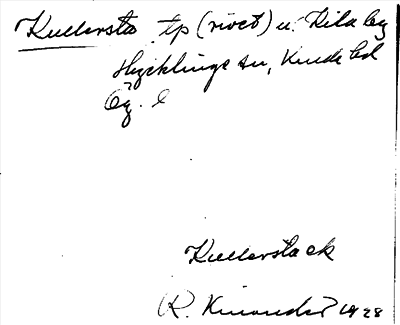 Kullersta tp (rivet) u. Kila by
Hycklinge sn, Kinda hd
Ög.
Kullerstack
R. Kinander 1928